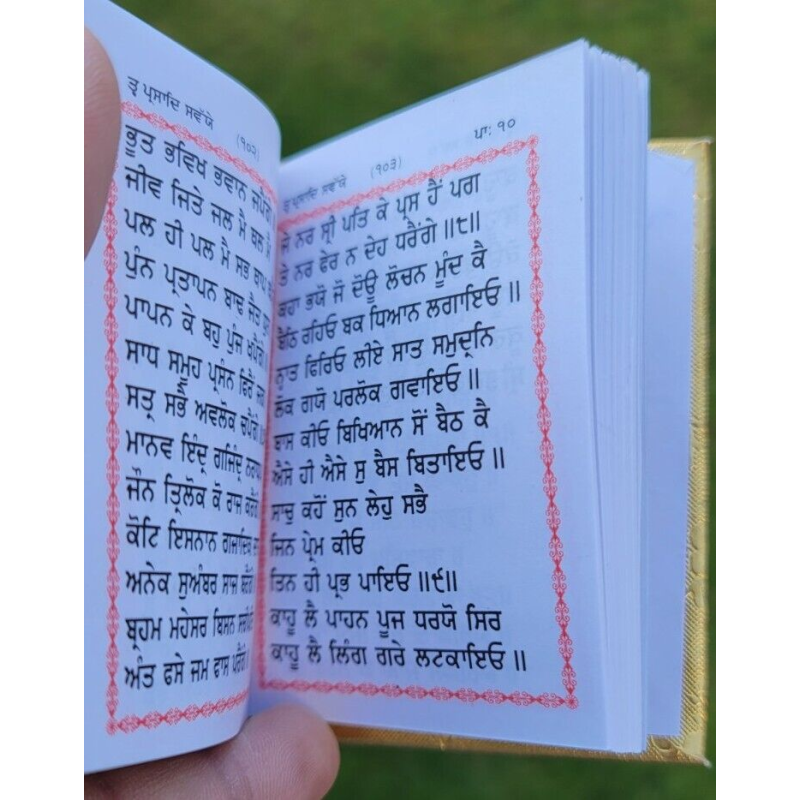 ਤ੍ਵ ਪ੍ਰਸਾਦਿ ਸਵੱਯੇ (੧੦੨)
ਭੂਤ ਭਵਿਖ ਭਵਾਨ ਜਪੈਂਗੇ
ਜੀਵ ਜਿਤੇ ਜਲ ਮੈ ਥਲ ਮੈ
ਪਲ ਹੀ ਪਲ ਮੈ ਸਭ ਥਾਪ
ਪੁੰਨ ਪ੍ਰਤਾਪਨ ਬਾਢ ਜੈਤ
ਪਾਪਨ ਕੇ ਬਹੁ ਪੁੰਜ ਖਪੈਂਗੇ
ਸਾਧ ਸਮੂਹ ਪ੍ਰਸੰਨ ਫਿਰੈਂ
ਸਤ੍ਰ ਸਭੈ ਅਵਲੋਕ ਚਪੈਂਗੇ
ਮਾਨਵ ਇੰਦ੍ਰ ਗਜਿੰਦ੍ਰ
ਜੌਨ ਤ੍ਰਿਲੋਕ ਕੋ ਰਾਜ ਕਰੈਂਗੇ
ਕੋਟਿ ਇਸਨਾਨ ਗਜਾਦਿਕ
ਅਨੇਕ ਸੁਅੰਬਰ ਸਾਜ ਬਰੈਂਗੇ
ਬ੍ਰਹਮ ਮਹੇਸਰ ਬਿਸਨ
ਅੰਤ ਫਸੇ ਜਮ ਫਾਸ ਪਰੈਂਗੇ
ਤ੍ਵ ਪ੍ਰਸਾਦਿ ਸਵੱਯੇ (੧੦੩) ਪਾਃ ੧੦
ਜੇ ਨਰ ਸ੍ਰੀ ਪਤਿ ਕੇ ਪ੍ਰਸ ਹੈਂ ਪਗ
ਤੇ ਨਰ ਫੇਰ ਨ ਦੇਹ ਧਰੈਂਗੇ ॥੮॥
ਕਹਾ ਭਯੋ ਜੋ ਦੋਊ ਲੋਚਨ ਮੂੰਦ ਕੈ
ਬੈਠਿ ਰਹਿਓ ਬਕ ਧਿਆਨ ਲਗਾਇਓ ॥
ਨ੍ਹਾਤ ਫਿਰਿਓ ਲੀਏ ਸਾਤ ਸਮੁਦ੍ਰਨਿ
ਲੋਕ ਗਯੋ ਪਰਲੋਕ ਗਵਾਇਓ ॥
ਬਾਸ ਕੀਓ ਬਿਖਿਆਨ ਸੋਂ ਬੈਠ ਕੈ
ਐਸੇ ਹੀ ਐਸੇ ਸੁ ਬੈਸ ਬਿਤਾਇਓ ॥
ਸਾਚੁ ਕਹੋਂ ਸੁਨ ਲੇਹੁ ਸਭੈ
ਜਿਨ ਪ੍ਰੇਮ ਕੀਓ
ਤਿਨ ਹੀ ਪ੍ਰਭ ਪਾਇਓ ॥੯॥
ਕਾਹੂ ਲੈ ਪਾਹਨ ਪੂਜ ਧਰਯੋ ਸਿਰ
ਕਾਹੂ ਲੈ ਲਿੰਗ ਗਰੇ ਲਟਕਾਇਓ ॥